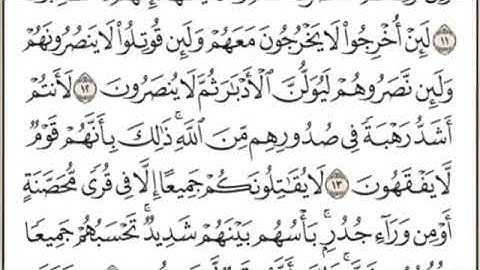 ١١ لَئِنْ أُخْرِجُوا۟ لَا يَخْرُجُونَ مَعَهُمْ وَلَئِن قُوتِلُوا۟ لَا يَنصُرُونَهُمْ
وَلَئِن نَّصَرُوهُمْ لَيُوَلُّنَّ ٱلْأَدْبَٰرَ ثُمَّ لَا يُنصَرُونَ ١٢ لَأَنتُمْ
أَشَدُّ رَهْبَةً فِى صُدُورِهِم مِّنَ ٱللَّهِ ۚ ذَٰلِكَ بِأَنَّهُمْ قَوْمٌ
لَّا يَفْقَهُونَ ١٣ لَا يُقَٰتِلُونَكُمْ جَمِيعًا إِلَّا فِى قُرًى مُّحَصَّنَةٍ
أَوْ مِن وَرَآءِ جُدُرٍۭ ۚ بَأْسُهُم بَيْنَهُمْ شَدِيدٌ ۚ تَحْسَبُهُمْ جَمِيعًا